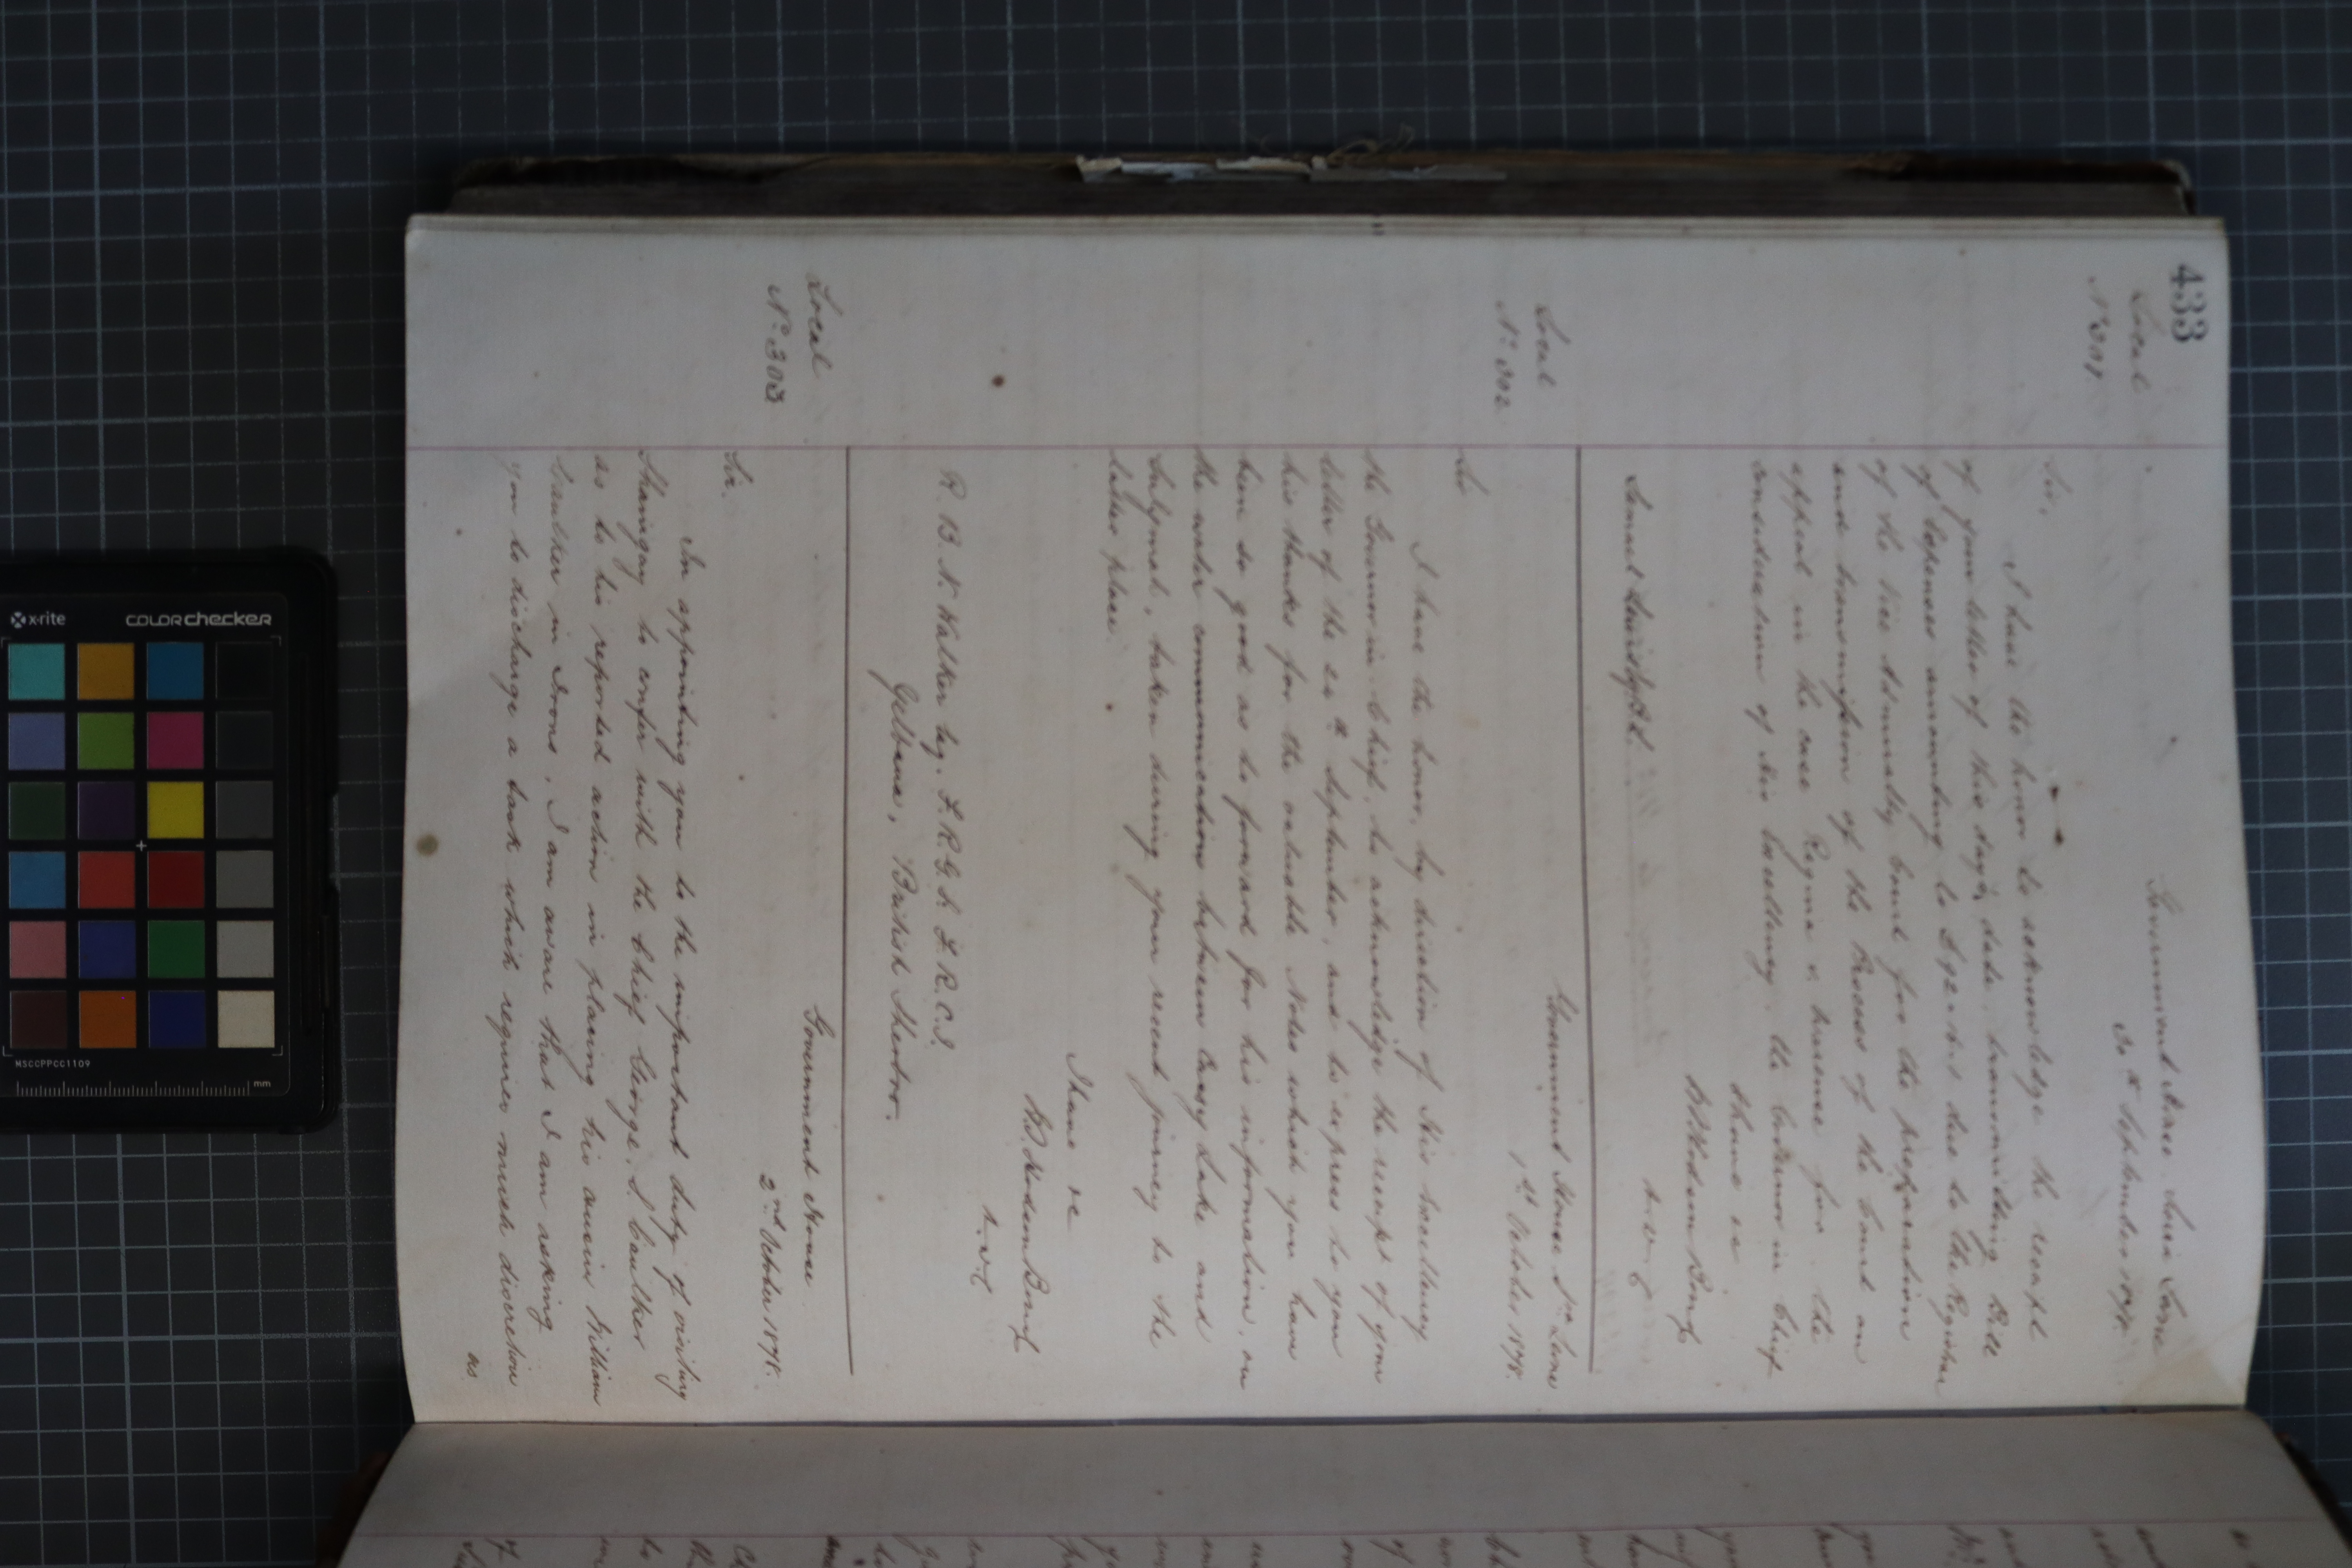 433
Local
No 301
Government House Sierra Leone
30th September 1878.
Sir,
I have the honor to acknowledge the receipt
of your letter of this day's date, transmitting Bill
of Expenses amounting to due to the Registrar
of the Vice Admiralty Court for the preparation
and transmission of the Process of the Court on
appeal in the case Regina v. for the
consideration of His Excellency, the Governor in Chief
I have &c
Hodson
Local
No 302
Government House Sra Leone
1st October 1878.
Sir
I have the honor, by direction of His Excellency
the Governor in Chief, to acknowledge the receipt of your
letter of the September, and to express to you
his thanks for the valuable Notes which you have
been so good as to forward for his information, on
the water communication between Lake and
Sulymah, taken during your recent journey to the
latter place.
I have &c
Hodson
R. B. N. Walker Esq. F. R. G. S. F. R. C. I.
British Sherbro.
Local
No 303
Government House
2nd October 1878.
Sir.
In appointing you to the important duty of visiting
Shaingay to confer with the Chief George. S. Caulker
as to his reported action in placing his cousin William
Caulker in Irons, I am aware that I am asking
you to discharge a task which requires much discretion
as
x-rite
colorchecker
MSCCPPCC1109
mm